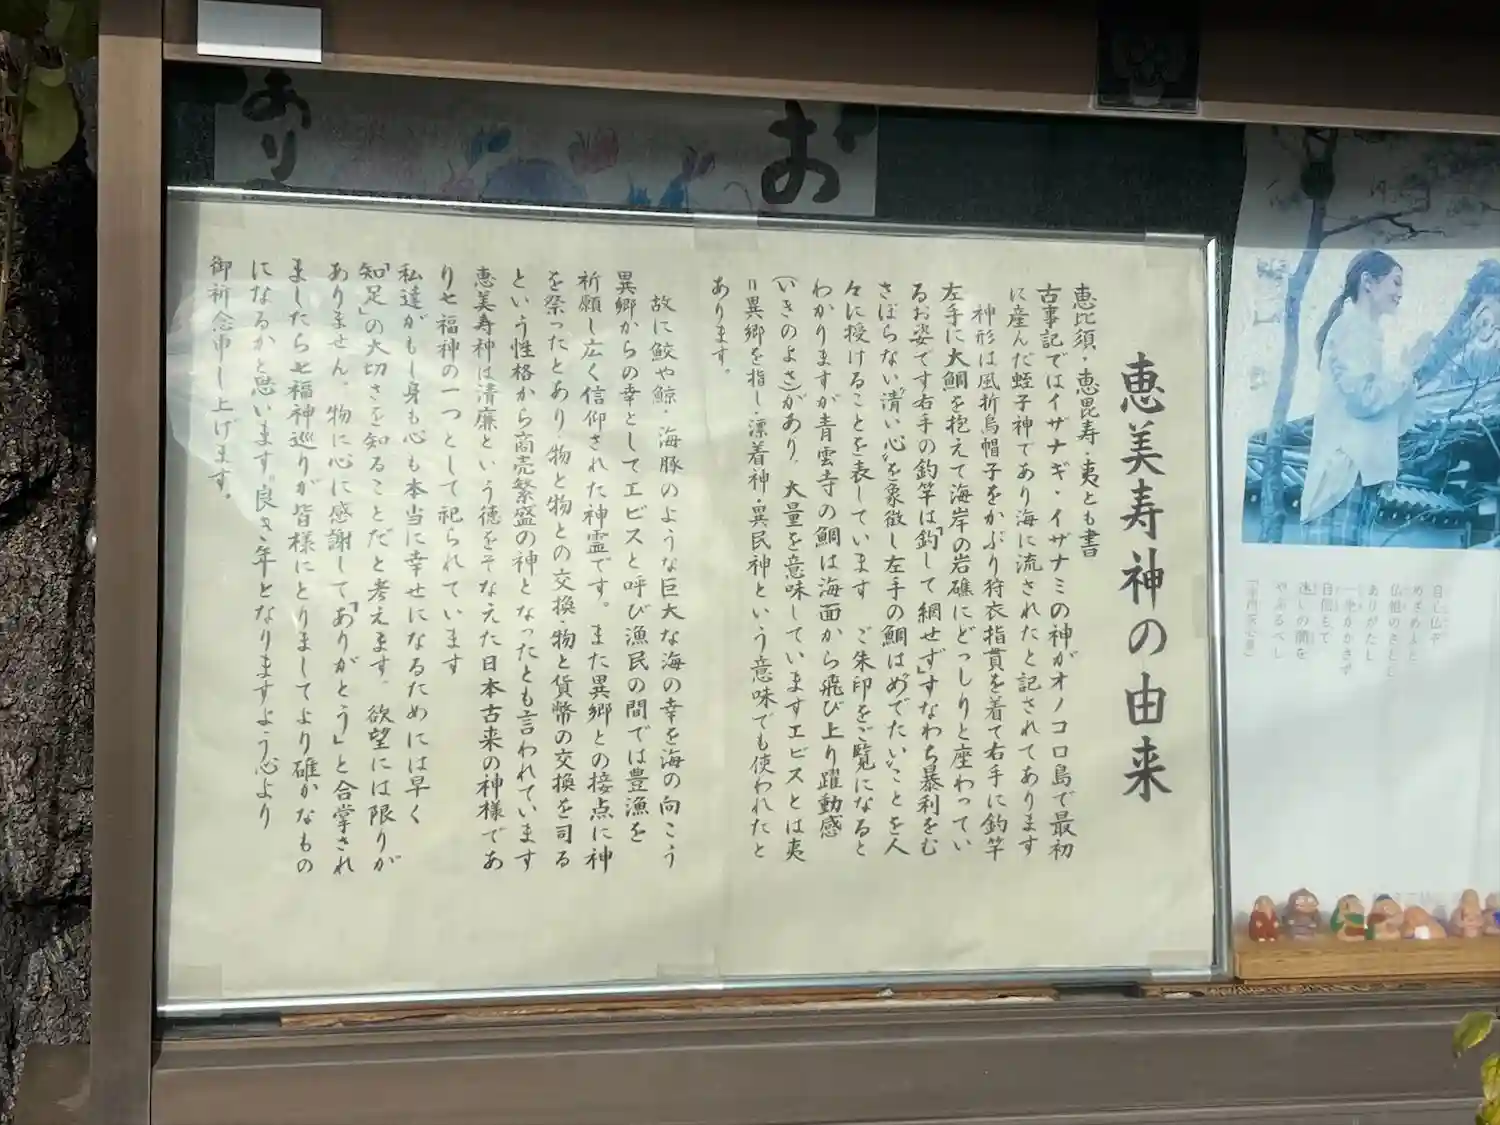 恵美寿神の由来
恵比須・恵毘寿・夷とも書
古事記ではイザナギ・イザナミの神がオノコロ島で最初
に産んだ蛭子神であり海に流されたと記されてあります
神形は風折烏帽子をかぶり狩衣指貫を着て右手に釣竿
左手に大鯛を抱えて海岸の岩礁にどっしりと座わってい
るお姿です右手の釣竿は「釣して網せず」すなわち暴利をむ
さぼらない"清い心"を象徴し左手の鯛は"めでたい"ことを人
々に授けることを表しています ご朱印をご覧になると
わかりますが青雲寺の鯛は海面から飛び上り躍動感
(いきのよさ)があり、大量を意味していますエビスとは夷
=異郷を指し・漂着神・異民神という意味でも使われたと
あります。
故に鮫や鯨・海豚のような巨大な海の幸を海の向こう
異郷からの幸としてエビスと呼び漁民の間では豊漁を
祈願し広く信仰された神霊です。また異郷との接点に神
を祭ったとあり物と物との交換・物と貨幣の交換を司る
という性格から商売繁盛の神となったとも言われています
恵美寿神は清廉という徳をそなえた日本古来の神様であ
り七福神の一つとして祀られています
私達がもし身も心も本当に幸せになるためには早く
「知足」の大切さを知ることだと考えます。欲望には限りが
ありません。物に心に感謝して「ありがとう」と合掌され
ましたら七福神巡りが皆様にとりましてより確かなもの
になるかと思います。良き年となりますよう心より
御祈念申し上げます。
お
あり
自心仏や
めざめよと
仏祖のさとし
ありがたし
一坐もかさず
自信もて
迷いの闇を
やぶるべし